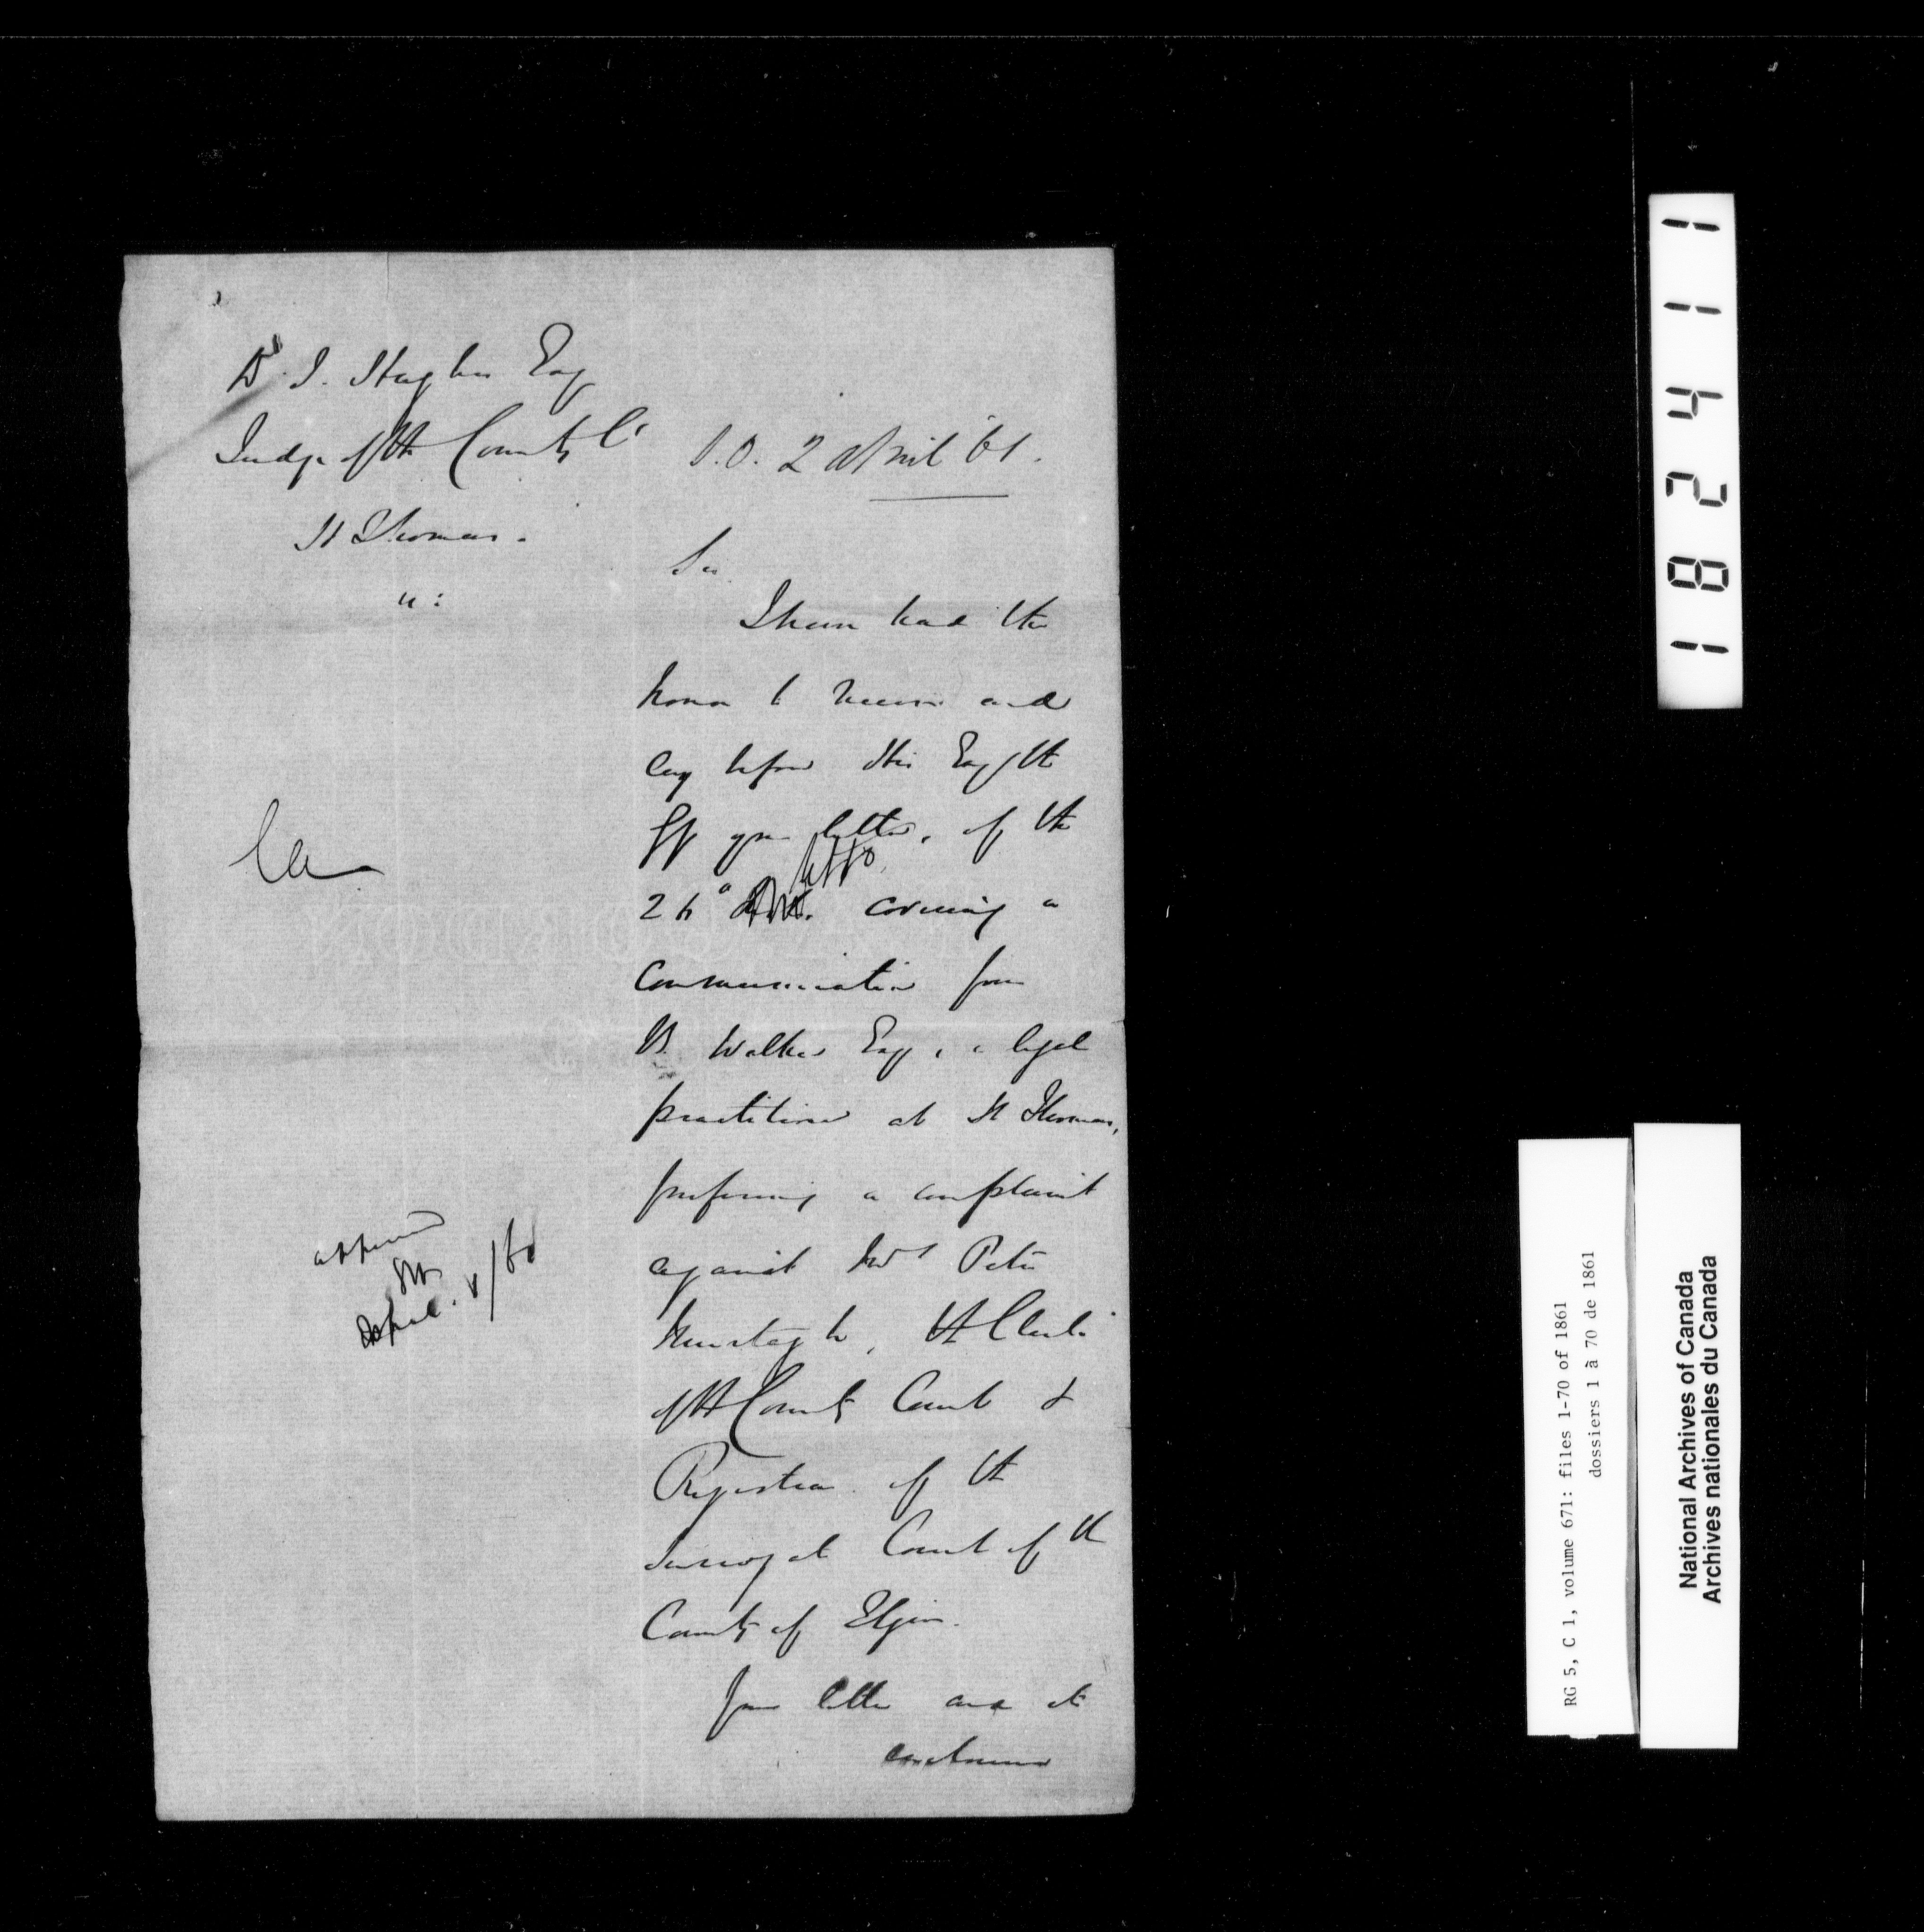 D. J. Hughes Esq
Judge of the County Ct
St Thomas.
S.O. 2 April '61.
Sir
I have had the
honor to receive and
lay before His Excy the
your letter, of the
26° covering a
communication from
W. Walker Esq, a legal
practitioner at St Thomas,
preferring a complaint
against Mr Peter
Murtagh, the Clerk
of the County Court &
Registrar of the
Surrogate Court of the
County of Elgin.
Your letter and its
enclosures
approved
April
182411
RG 5, C 1, volume 671: files 1-70 of 1861
dossiers 1 à 70 de 1861
National Archives of Canada
Archives nationales du Canada